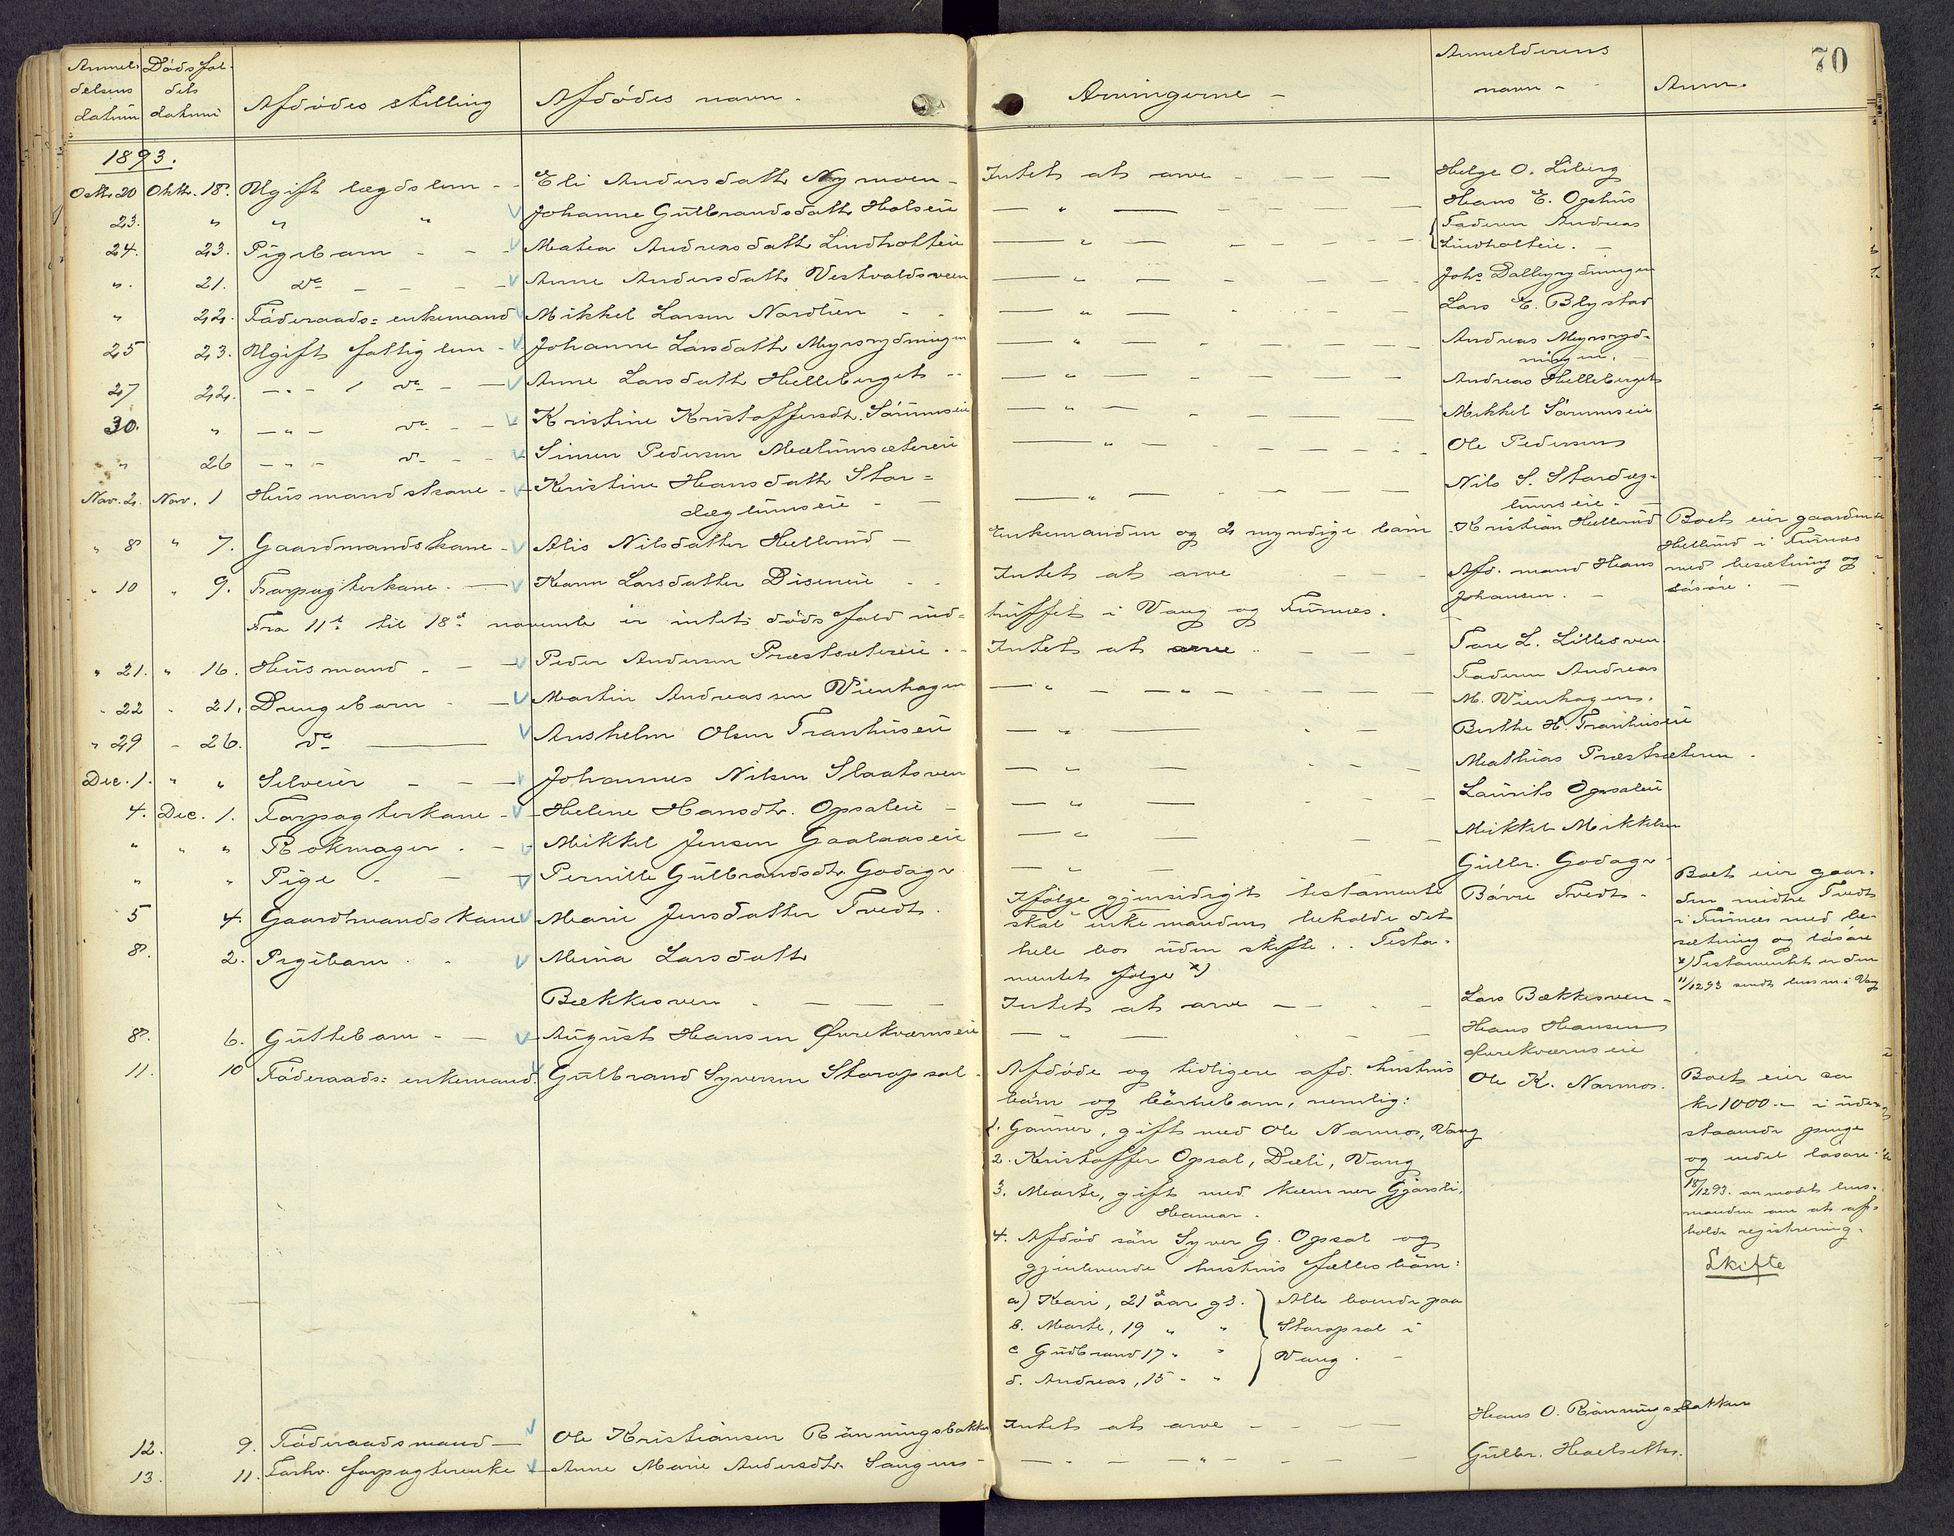 70
Anmel-
delsens
datum
Dødsfal-
dets
datum
Afdødes stilling
Afdødes navn.
Arvingerne
Anmelderens
navn
Anm.
1893.
Octb. 20 Oktb. 18. Ugift lægdslem Eli Andersdatt. Nymoen Intet at arve Helge O. Liberg
23. " " " Johanne Gulbrandsdatt. Holseie " Hans E. Opshus
24. 23. Pigebarn Matea Andreasdatt. Lindholteie " Faderen Andreas
Lindholteie.
". 21. do Anne Andersdatt. Vestvoldsveen " Johs Dalbyrydningen
" 22. Føderaads= enkemand Mikkel Larsen Nordlien " Lars E. Blystad
25 23. Ugift fattiglem Johanne Larsdatt. Myrsrydningen " Andreas Myrsryd-
ningen.
27 22. " do Anne Larsdatt. Helleberget " Andreas Helleberget
30. " " do Kristine Kristoffersdt. Sørumseie " Mikkel Sørumseie
" 26 " do Simen Pedersen Mælumsætereie " Ole Pedersen
Nov. 2. Nov. 1 Husmandskone Kristine Hansdatt. Stor=
dæglumseie " Nils S. Stordæg-
lumseie
" 8 " 7. Gaardmandskone Alis Nilsdatter Hellerud Enkemanden og 2 myndige børn Kristian Hellerud Boet eier gaarden
Hellerud i Furnes
med besætning og
løsøre.
" 10 " 9. Forpagterkone. Karen Larsdatter Diseneie Intet at arve Afd. mand Hans
Johansen.
Fra 11te til 18de novembr er intet dødsfald ind= truffet i Vang og Furnes.
" 21. " 16. Husmand Peder Andersen Præstsætereie. Intet at arve Tore L. Lillesveen
" 22 " 21. Drengebarn Martin Andreassen Vienhagen " " Faderen Andreas
M. Vienhagen.
" 29 " 26. do Anshelm Olsen Tranhuseie " Berthe H. Tranhuseie
Dec. 1. " " Selveier Johannes Nilsen Slaatsveen " Mathias Præstsæteren.
4. Dec. 1. Forpagterkone Helene Hansdtr. Opsaleie " Laurits Opsaleie
" " " Rokmager Mikkel Jensen Gaalaaseie " Mikkel Mikkelsen
" " Pige Pernille Gulbrandsdtr. Godager " Gulbr. Godager
5 4. Gaardmandskone Marie Jensdatter Tvedt. Ifølge gjensidigt testamente Børre Tvedt
skal enkemanden beholde det
hele bo uden skifte. Testa-
mentet følge x)
Boet eier gaar-
den midtre Tvedt
i Furnes med be-
sætning og løsøre
x) Testamentet er den
11/1293 sendt lensm. i Vang
8. 2. Pigebarn Mina Larsdatt.
Bækkesveen Intet at arve Lars Bækkesveen
8. 6. Guttebarn August Hansen Øvrekværnseie " Hans Hansen
Øvrekværnseie
11. 10 Føderaads= enkemand. Gulbrand Syversen Storopsal. Afdøde og tidligere afd. hustrus Ole K. Narmos.
børn og børnebarn, nemlig:
1. Gunner, gift med Ole Narmos, Vang
2. Kristoffer Opsal, Dæli, Vang
3. Marte, gift med kæmner Gjørsli,
Hamar.
4. Afdød søn Syver G. Opsal og
gjenlevende hustrus fællesbørn:
a) Kari, 21 aar gl.
b. Marte, 19 " "
c Gudbrand 17 " "
d. Andreas, 15 " "
Alle boende paa
Storopsal i
Vang.
Boet eier ca
kr 1000.- i ude-
staaende penge
og endel løsøre.
18/1293. anmodet lens-
manden om at af-
holde registrering.
Skifte
12. 9. Føderaadsmand Ole Kristiansen Rønningsbakken Intet at arve Hans O. Rønningsbakken
13. 11. Forhv. forpagterenke Anne Marie Andersdtr. " Gulbr.